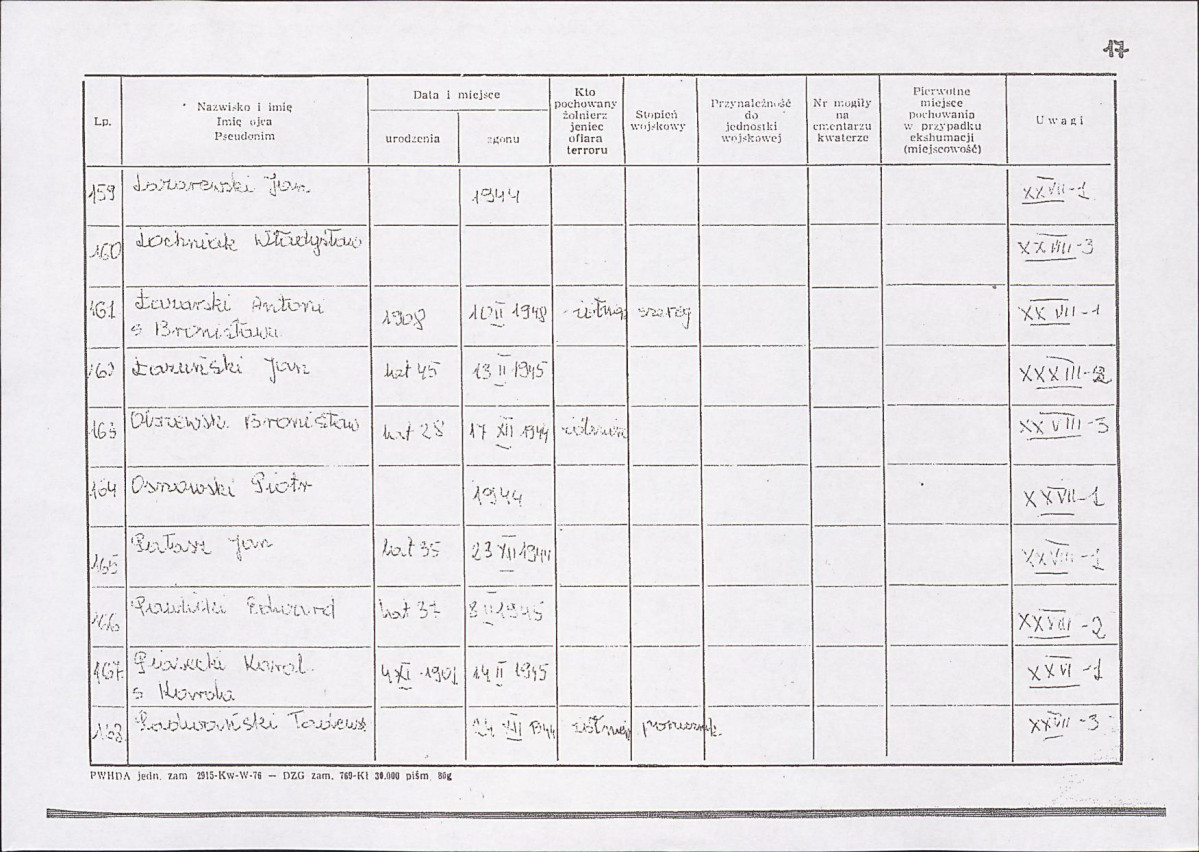 17
Lp.
Nazwisko i imię
Imię ojca
Pseudonim
Data i miejsce
urodzenia
zgonu
Kto
pochowany
żołnierz
jeniec
ofiara
terroru
Stopień
wojskowy
Przynależność
do
jednostki
wojskowej
Nr mogiły
na
cmentarzu
kwaterze
Pierwotne
miejsce
pochowania
w przypadku
ekshumacji
(miejscowość)
Uwagi
159 Jan 1944 XXVII-1
160 Łochniak Władysław XXVIII-3
161 Łazarski Antoni 1908 10 II 1948 szereg XXVII-1
s Bronisława
Łazuński Jan lat 45 13 II 1945
163 Bronisław lat 28 17 XII 1944 XXVIII-3
164 Piotr 1944 XXVII-1
165 Jan lat 35 23 XII 1944
166 Edward lat 37 II 1945 -2
167 Piasecki Karol 4 XI 1901 14 II 1945 XXVI-1
s Karola
168 XII 1944 XXVII-3
PWHDA jedn. zam 2915-Kw-W-76 — DZG zam. 769-Kl 30.000 piśm. 80g